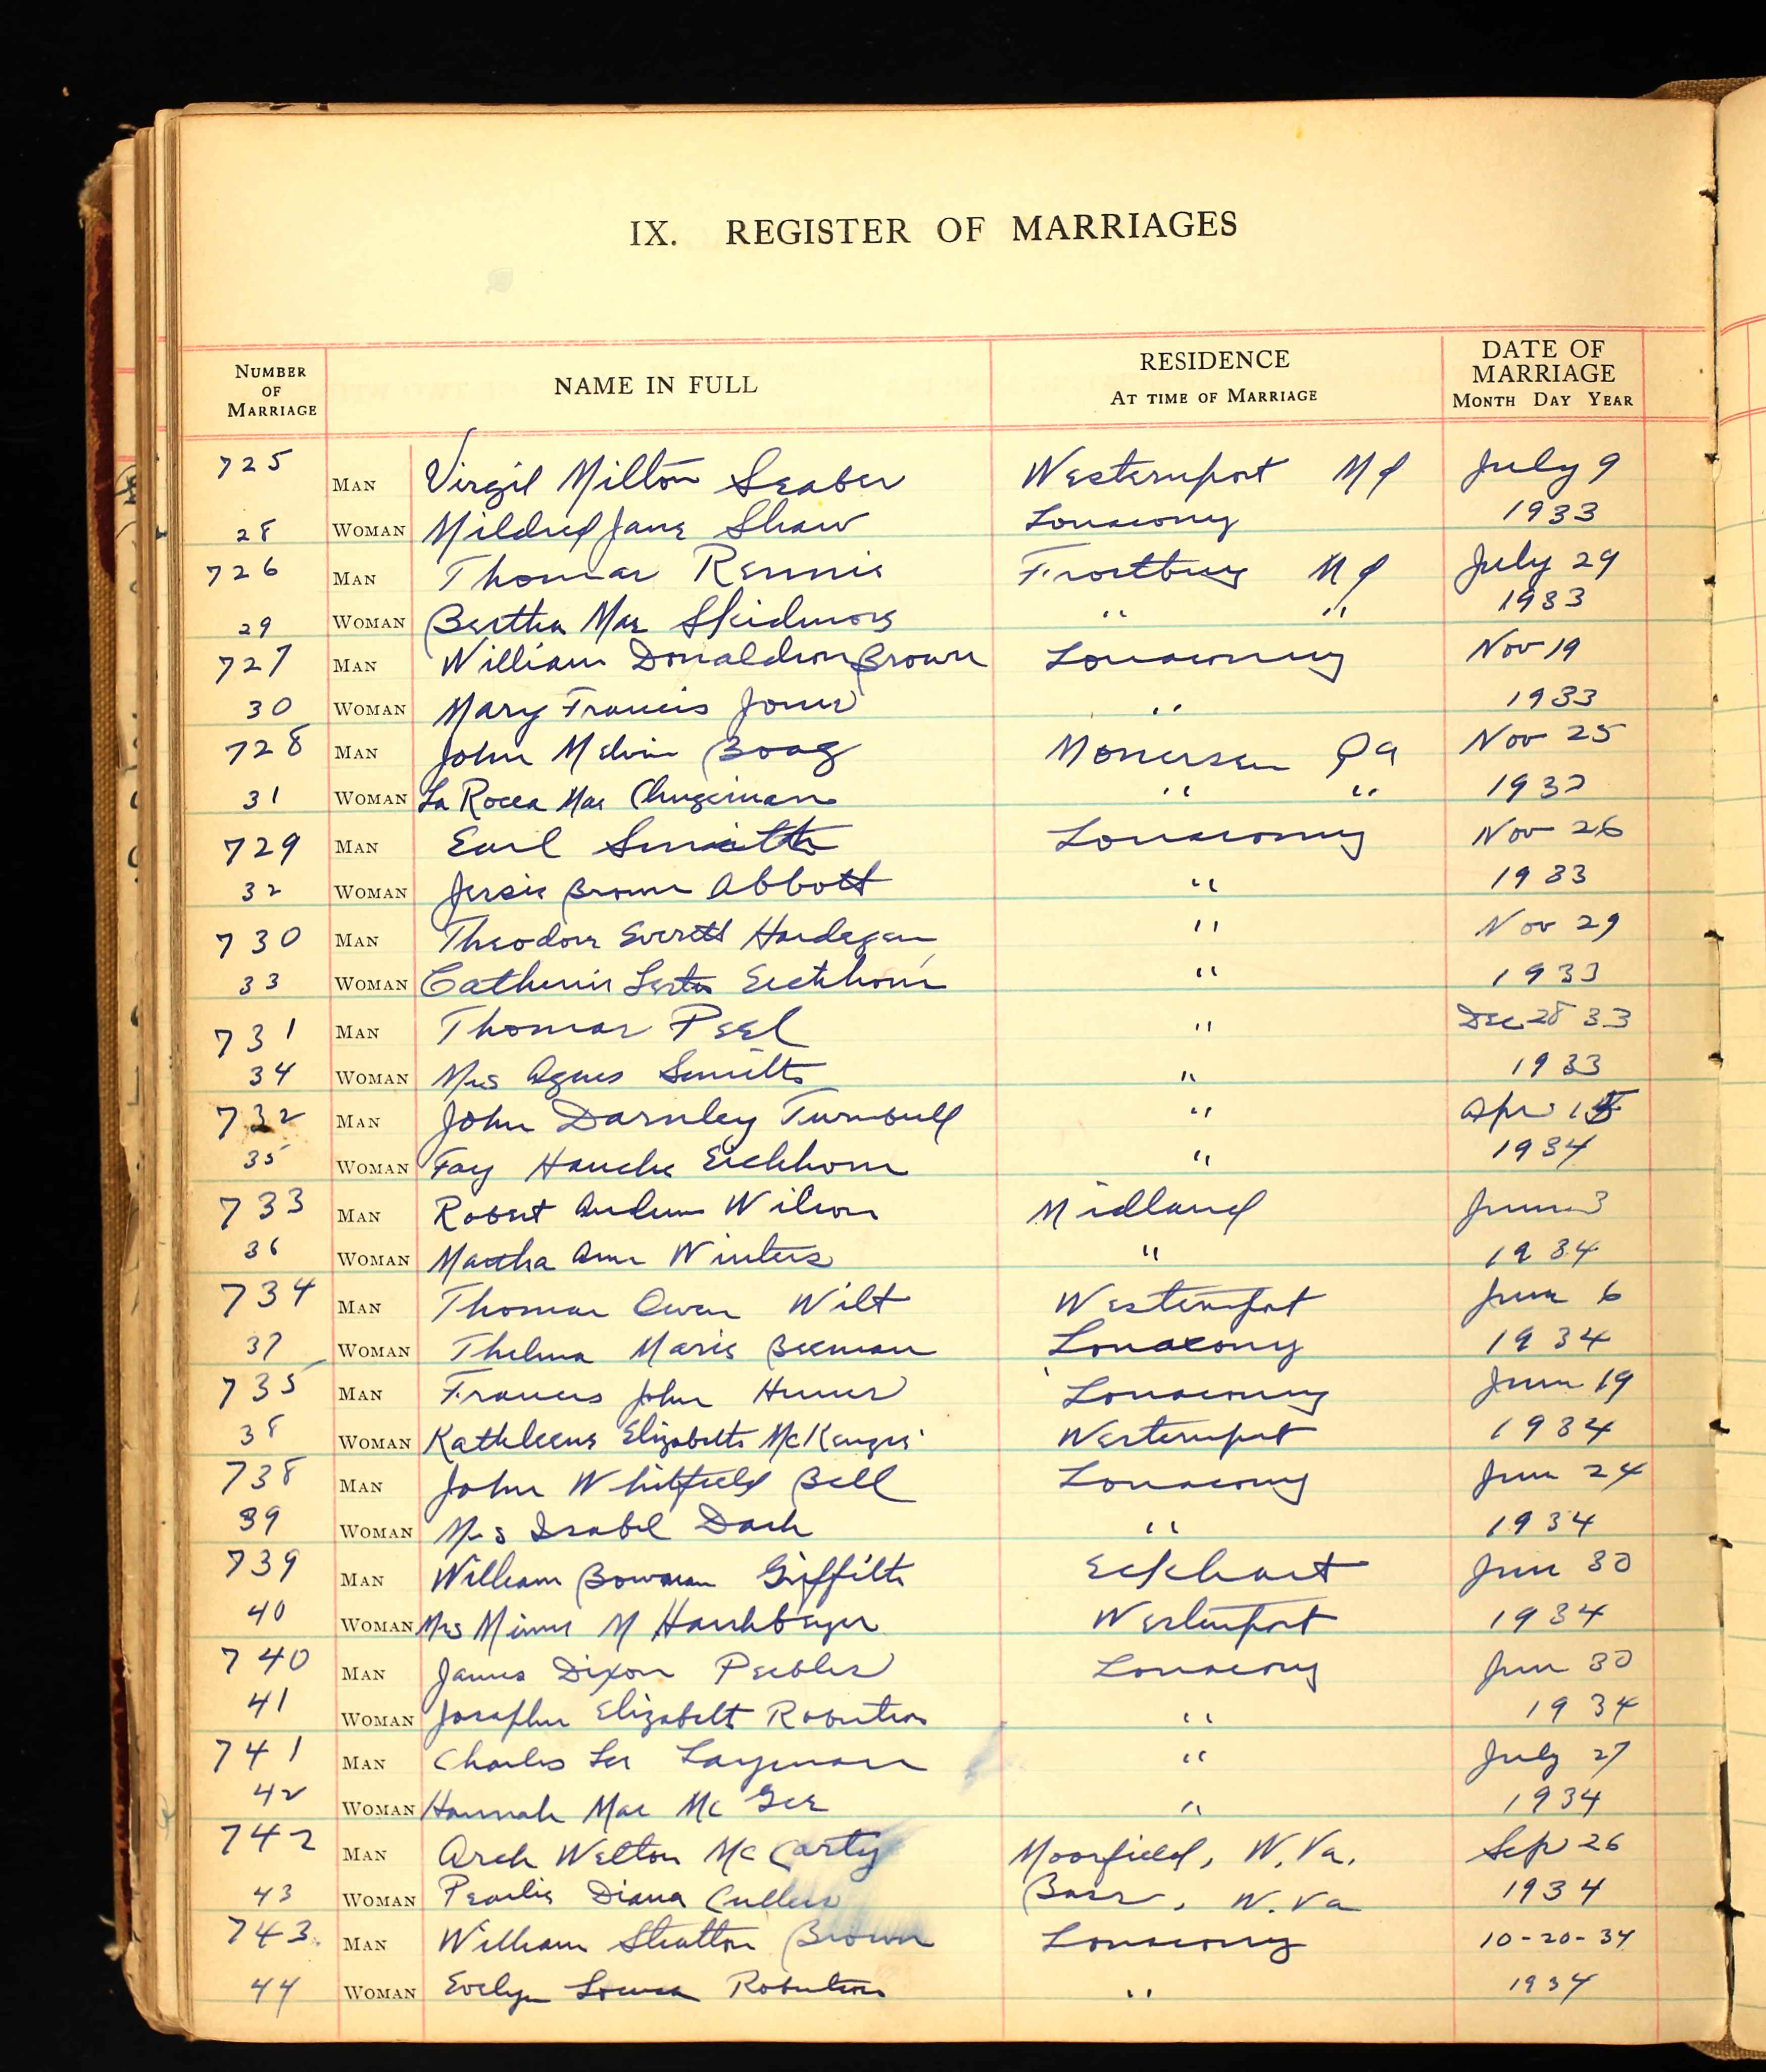 IX. REGISTER OF MARRIAGES
NUMBER OF MARRIAGE NAME IN FULL RESIDENCE AT TIME OF MARRIAGE DATE OF MARRIAGE MONTH DAY YEAR
725 MAN Virgil Milton Seaber Westernport Md July 9
28 WOMAN Mildred Jane Shaw Lonaconing 1933
726 MAN Thomas Rennie Frostburg Md July 29
29 WOMAN Bertha Mae Skidmore " " 1933
727 MAN William Donaldson Brown Lonaconing Nov 19
30 WOMAN Mary Francis Jones " 1933
728 MAN John Melvin Boag Monessen Pa Nov 25
31 WOMAN La Rocca Mae " " 1933
729 MAN Earl Smith Lonaconing Nov 26
32 WOMAN Jessie Brown Abbott " 1933
730 MAN Theodore Everett Hardegen " Nov 29
33 WOMAN Catherine Eichhorn " 1933
731 MAN Thomas Peel " Dec 28 33
34 WOMAN Mrs Agnes Smith " 1933
732 MAN John Darnley Turnbull " Apr 15
35 WOMAN Fay Eichhorn " 1934
733 MAN Robert Andrew Wilson Midland June 3
36 WOMAN Martha Ann Winters " 1934
734 MAN Thomas Owen Wilt Westernport June 6
37 WOMAN Thelma Marie Beeman Lonaconing 1934
735 MAN Francis John Lonaconing June 19
38 WOMAN Kathleene Elizabeth McKenzie Westernport 1934
738 MAN John Whitfield Bell Lonaconing June 24
39 WOMAN Mrs Isabel Dash " 1934
739 MAN William Bowman Griffith Eckhart June 30
40 WOMAN Mrs Minnie M Harshberger Westernport 1934
740 MAN James Dixon Peebles Lonaconing June 30
41 WOMAN Josephine Elizabeth Robertson " 1934
741 MAN Charles Lee Layman " July 27
42 WOMAN Hannah Mae McGee " 1934
742 MAN Arch Welton McCarty Moorfield, W. Va. Sep 26
43 WOMAN Pearlie Diana Cullers Bass, W. Va 1934
743 MAN William Stratton Brown Lonaconing 10-20-34
44 WOMAN Evelyn Louisa Robertson " 1934